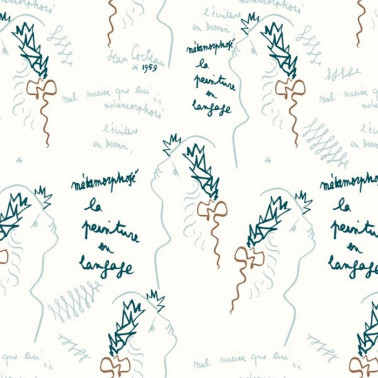 métamorphosé
l'écriture
en dessin,
Jean Cocteau
1959
métamorphosé
la
peinture
en
langage
nul mieux que lui
métamorphosé
nul mieux que lui
métamorphosé
l'écriture
en dessin,
l'écriture
en dessin,
métamorphosé
la
peinture
en
langage
métamorphosé
la
peinture
en
langage
que lui
nul mieux que lui